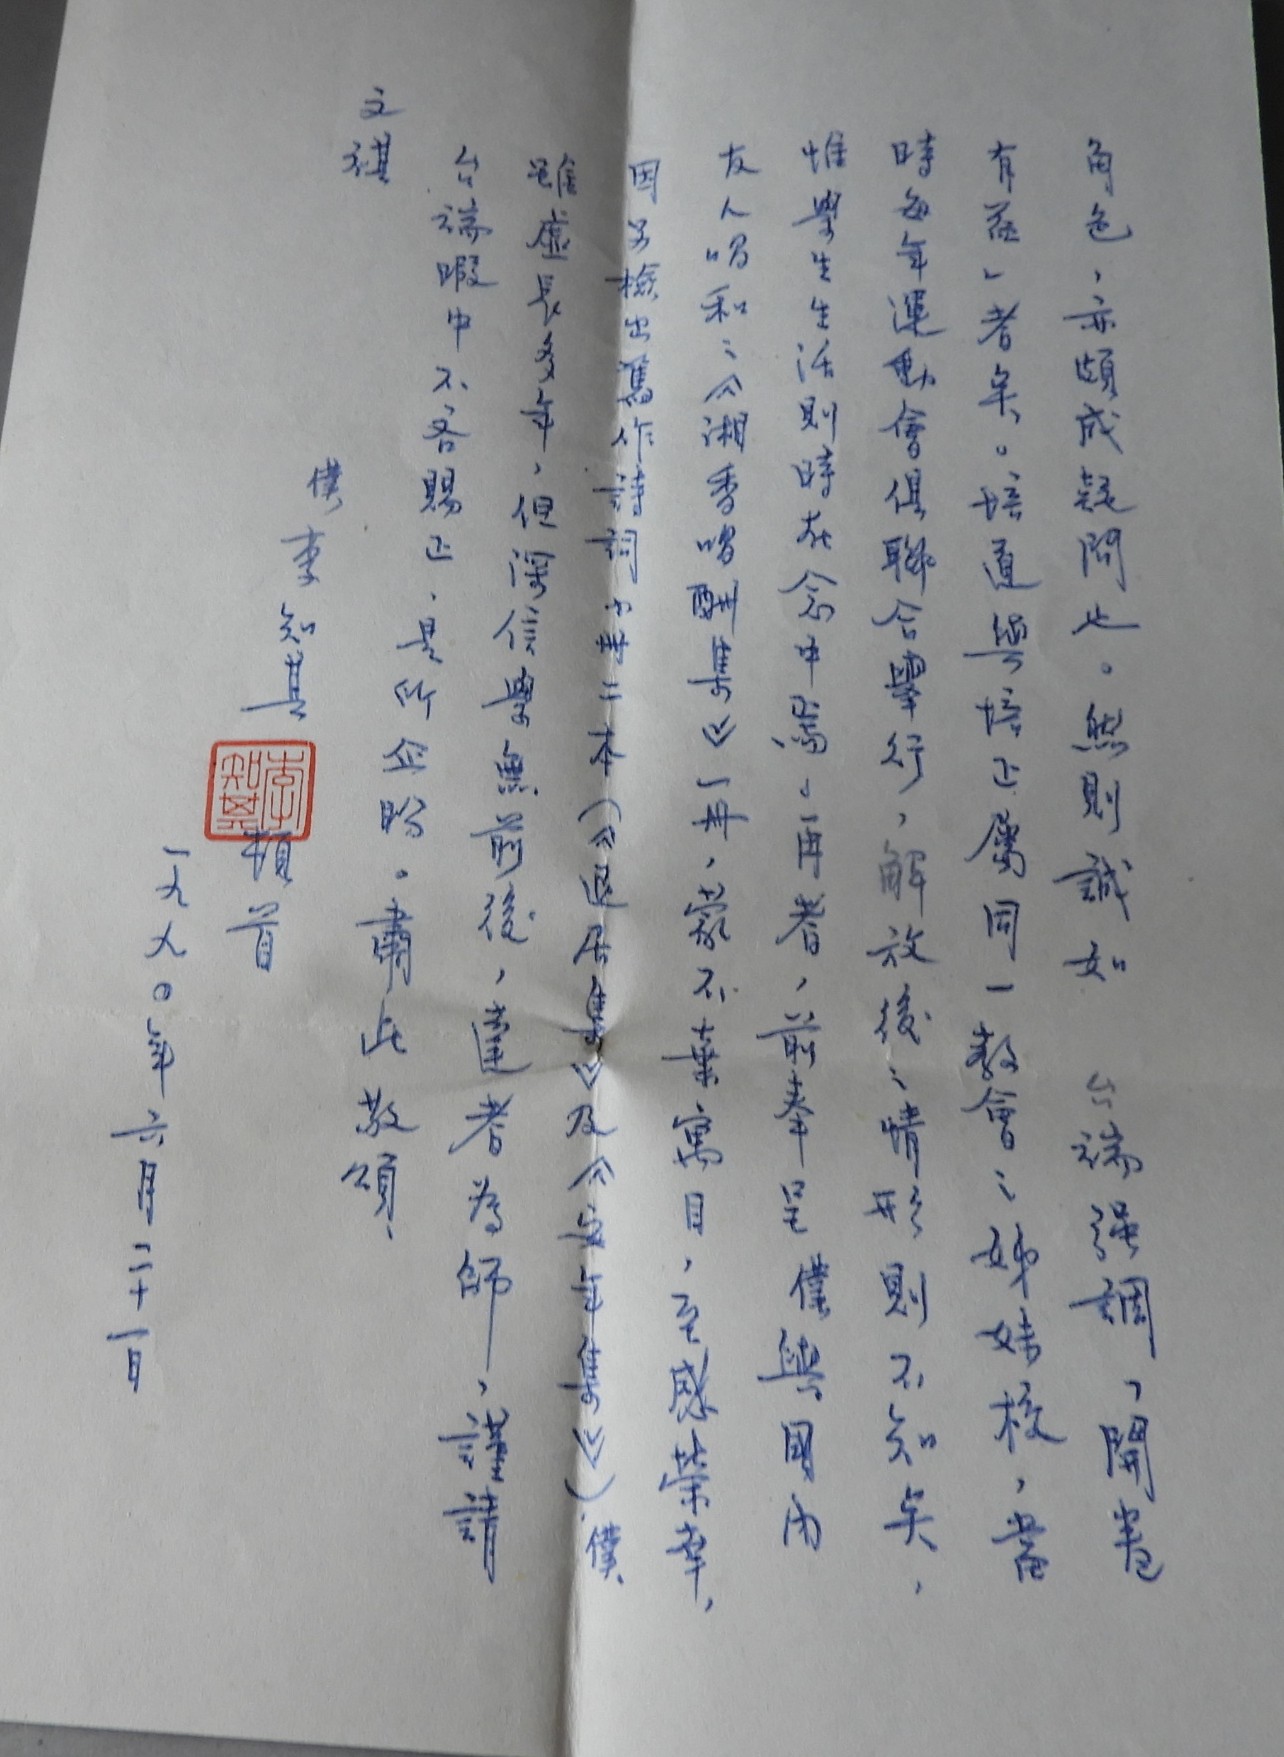 角色，亦頗成疑問也。然則誠如　台端强調，「開卷
有益」者矣。培道與培正屬同一教會之姊妹校，當
時每年運動會俱聯合舉行，解放後之情形則不知矣，
惟學生生活則時在念中焉。再者，前奉呈僕與國内
友人唱和之《湘香唱酬集》一册，蒙不棄寓目，至感榮幸，
因又檢出舊作詩詞小册二本（《退居集》及《安年集》）僕
雖虛長多年，但深信學無前後，達者為師，謹請
台端暇中不吝賜正，是所企盼。肅此敬頌
文祺
僕李知其
李知其
頓首
一九九〇年六月二十一日